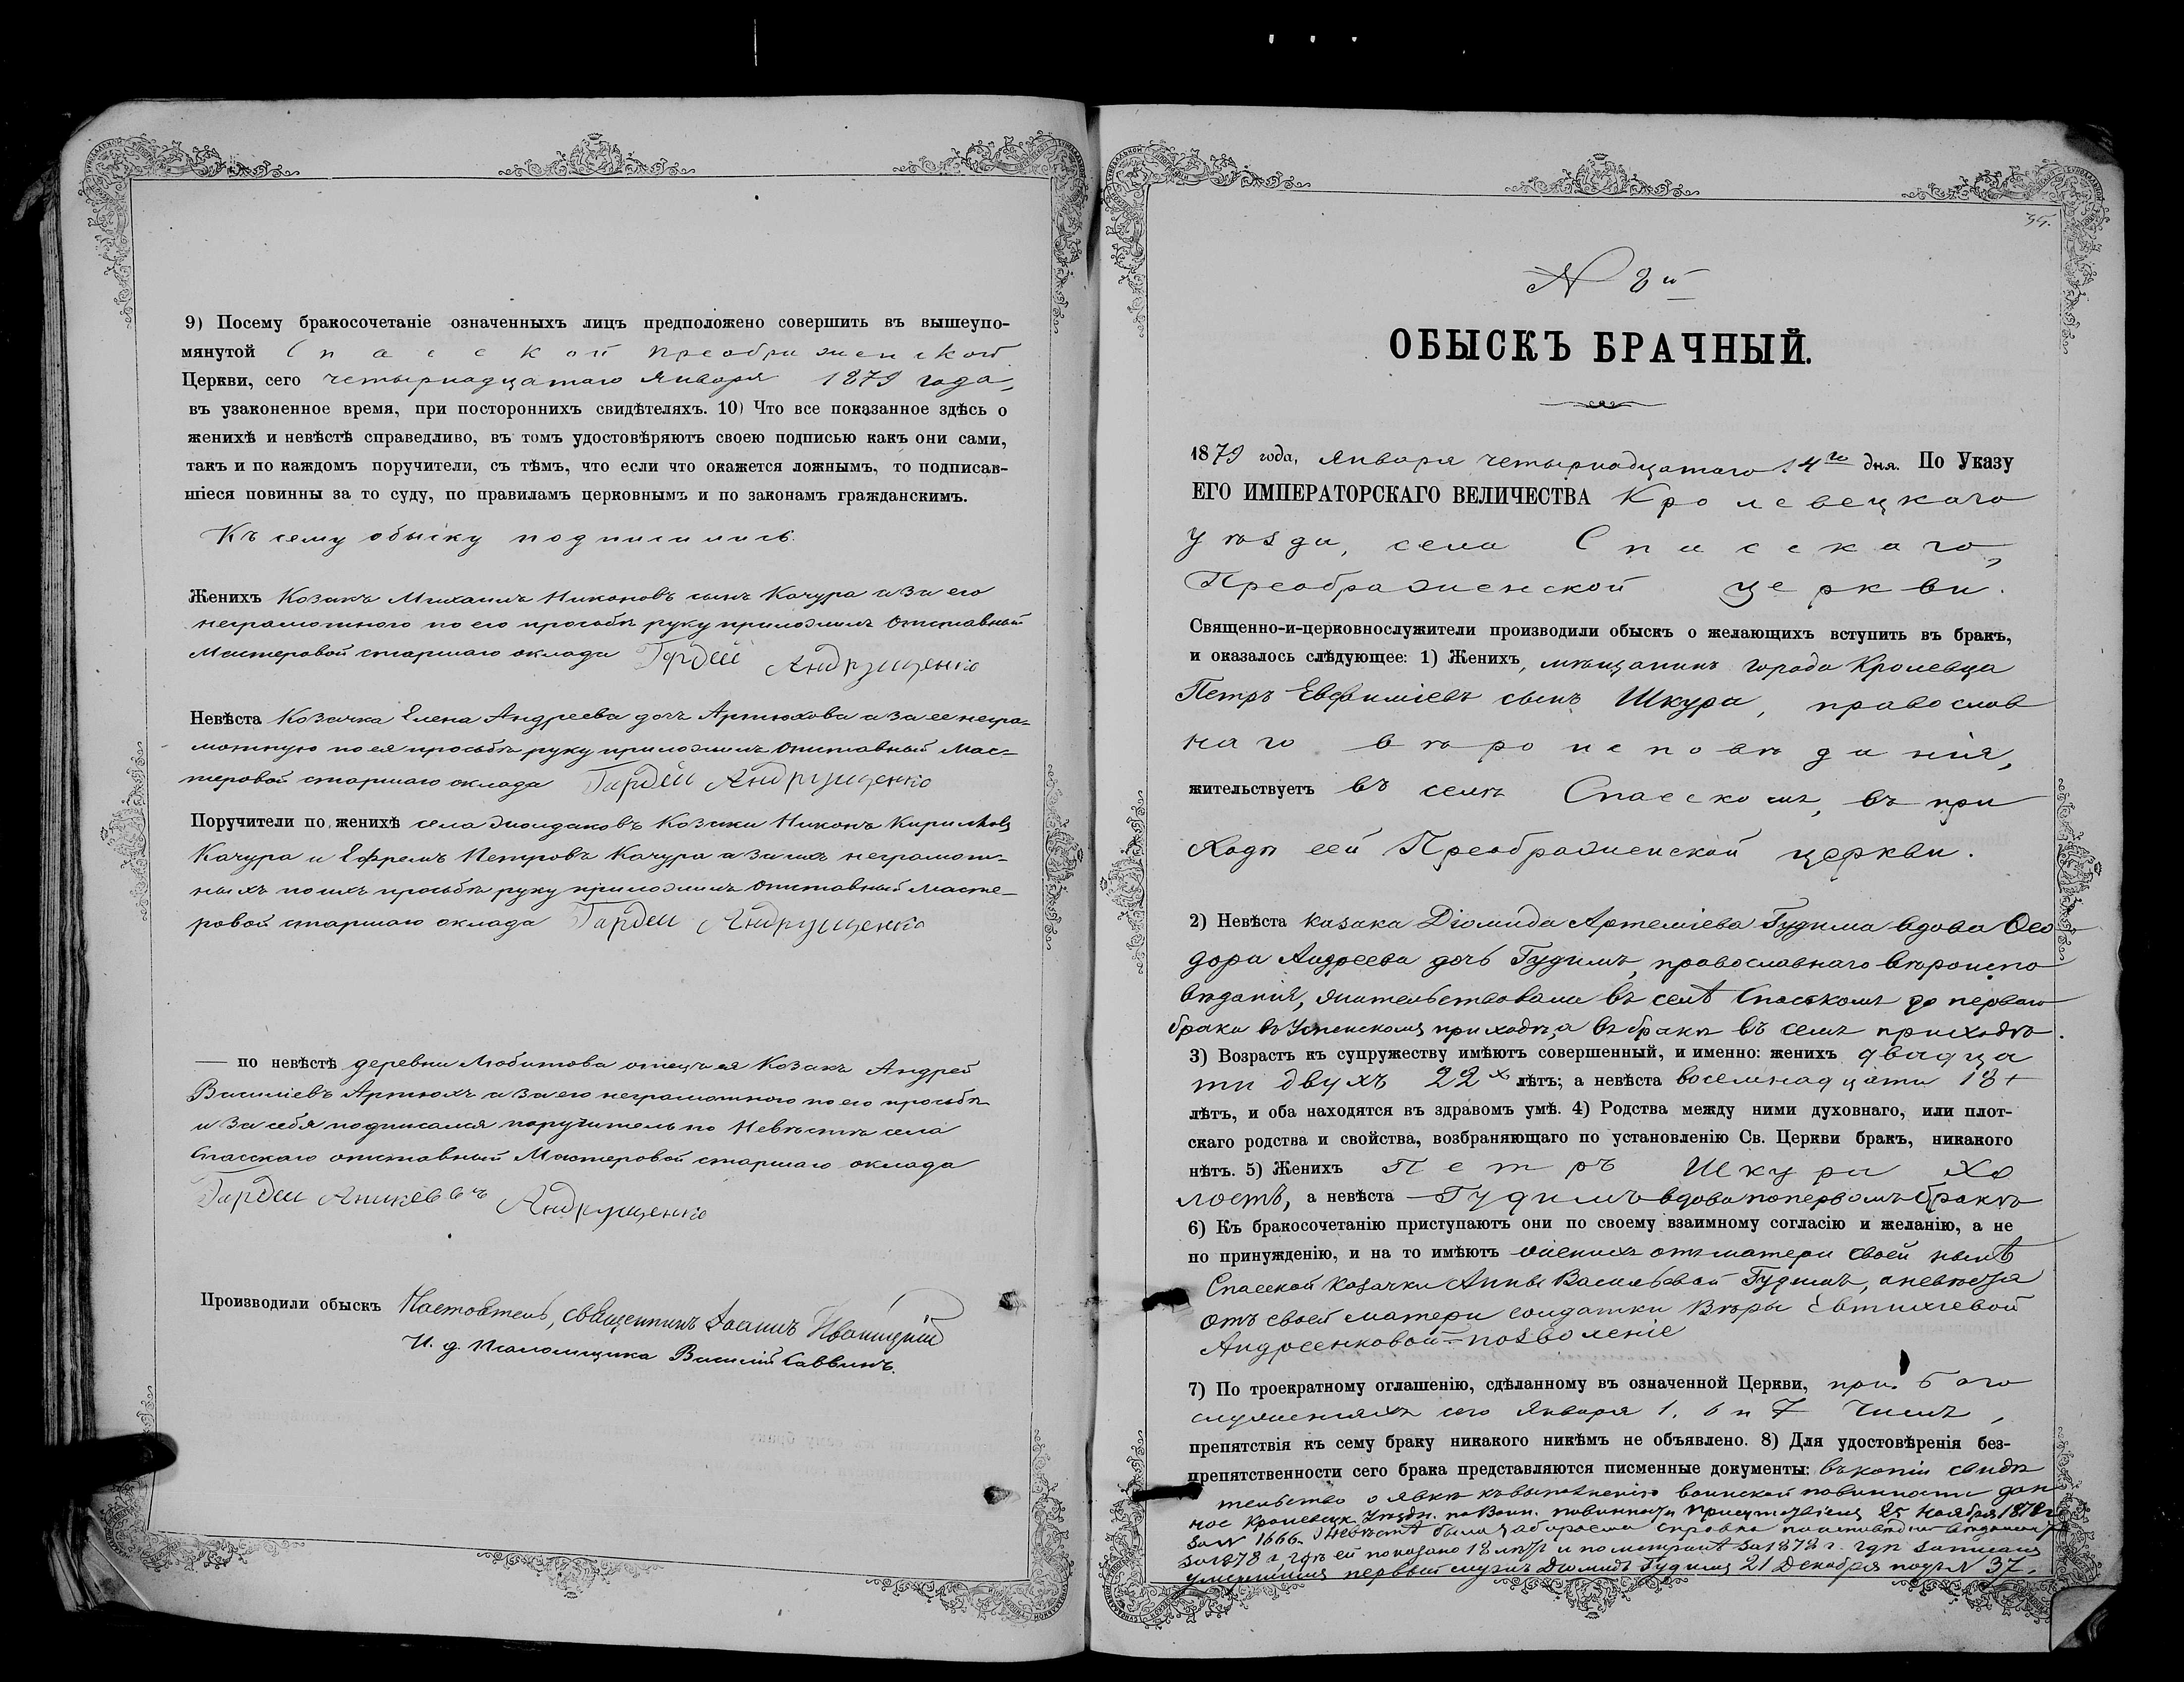 9) Посему бракосочетаніе означенныхъ лицъ предположено совершить въ вышеупо-
мянутой Спасской Преображенской
Церкви, сего четырнадцатаго Января 1879 года,
въ узаконенное время, при постороннихъ свидѣтеляхъ. 10) Что все показанное здѣсь о
женихѣ и невѣстѣ справедливо, въ томъ удостовѣряютъ своею подписью какъ они сами,
такъ и по каждомъ поручители, съ тѣмъ, что если что окажется ложнымъ, то подписав-
шіеся повинны за то суду, по правиламъ церковнымъ и по законамъ гражданскимъ.
Къ сему обыску подписались:
Женихъ Козакъ Михаилъ Никоновъ сынъ Качура а за его
неграмотного по его просьбѣ руку приложилъ Отставный
Мастеровой старшаго оклада Гордей Андрущенко
Невѣста Козачка Елена Андреева дочь Артюхова а за ее негра-
мотную по ея просьбѣ руку приложилъ Отставный Мас-
теровой старшаго оклада Гардей Андрущенко
Поручители по женихѣ села Козаки Никонъ Кириловъ
Качура и Ефремъ Петровъ Качура а за ихъ неграмот-
ныхъ по ихъ просьбѣ руку приложилъ Отставный Масте-
ровой старшаго оклада Гардей Андрущенко
— по невѣстѣ деревни Любитова отецъ ея Козакъ Андрей
Василіевъ Артюхъ а за его неграмотного по его просьбѣ
и за себя подписался поручитель по Невѣстѣ села
Спасскаго отставный Мастеровой старшаго оклада
Гардей Аникеевъ Андрущенко
Производили обыскъ Настоятель, священникъ Іоаннъ Иваницкій
И. д. Псаломщика Василій Саввинъ.
35.
N 8й
ОБЫСКЪ БРАЧНЫЙ.
1879 года, Января четырнадцатаго 14го дня. По Указу
ЕГО ИМПЕРАТОРСКАГО ВЕЛИЧЕСТВА Кролевецкаго
уѣзда, села Спасскаго,
Преображенской церкви.
Священно-и-церковнослужители производили обыскъ о желающихъ вступить въ бракъ,
и оказалось слѣдующее: 1) Женихъ, мѣщанинъ города Кролевца
Петръ Евфиміевъ сынъ Шкура, православ
наго вѣроисповѣданія,
жительствуетъ въ селѣ Спасскомъ, въ при
ходѣ сей Преображенской церкви.
2) Невѣста казака Діомида Артеміева Гудима вдова Ѳео
дора Андреева дочь Гудимъ, православнаго вѣроиспо
вѣданія, жительствовала въ селѣ Спасскомъ до перваго
брака въ Успенскомъ приходѣ, а въ бракѣ въ семъ приходѣ.
3) Возрастъ къ супружеству имѣютъ совершенный, и именно: женихъ двадца
ти двухъ 22х лѣтъ; а невѣста восемнадцати 18
лѣтъ, и оба находятся въ здравомъ умѣ. 4) Родства между ними духовнаго, или плот-
скаго родства и свойства, возбраняющаго по установленію Св. Церкви бракъ, никакого
нѣтъ. 5) Женихъ Петръ Шкура хо
лостъ, а невѣста Гудимъ вдова по первомъ бракѣ
6) Къ бракосочетанію приступаютъ они по своему взаимному согласію и желанію, а не
по принужденію, и на то имѣютъ женихъ отъ матери своей нынѣ
Спасской козачки Анны Васильевой Гудимъ, а невѣста
отъ своей матери солдатки Вѣры Евтихіевой
Андреенковой — позволеніе
7) По троекратному оглашенію, сдѣланному въ означенной Церкви, при Бого
служеніяхъ сего Января 1, 6 и 7 чиселъ,
препятствія къ сему браку никакого никѣмъ не объявлено. 8) Для удостовѣренія без-
препятственности сего брака представляются писменные документы: въ копіи свидѣ
тельство о явкѣ къ выполненію воинской повинности дан
ное Кролевецк. Уѣздн. по Воин. повинности присутствіемъ 25 Ноября 1878 г.
за N 1666. О невѣстѣ была справка по
за 1878 г., гдѣ ей показано 18 лѣтъ и по метрикѣ за 1878 г. гдѣ записанъ
умершимъ первый мужъ Діомидъ Гудимъ 21 Декабря подъ N 37.